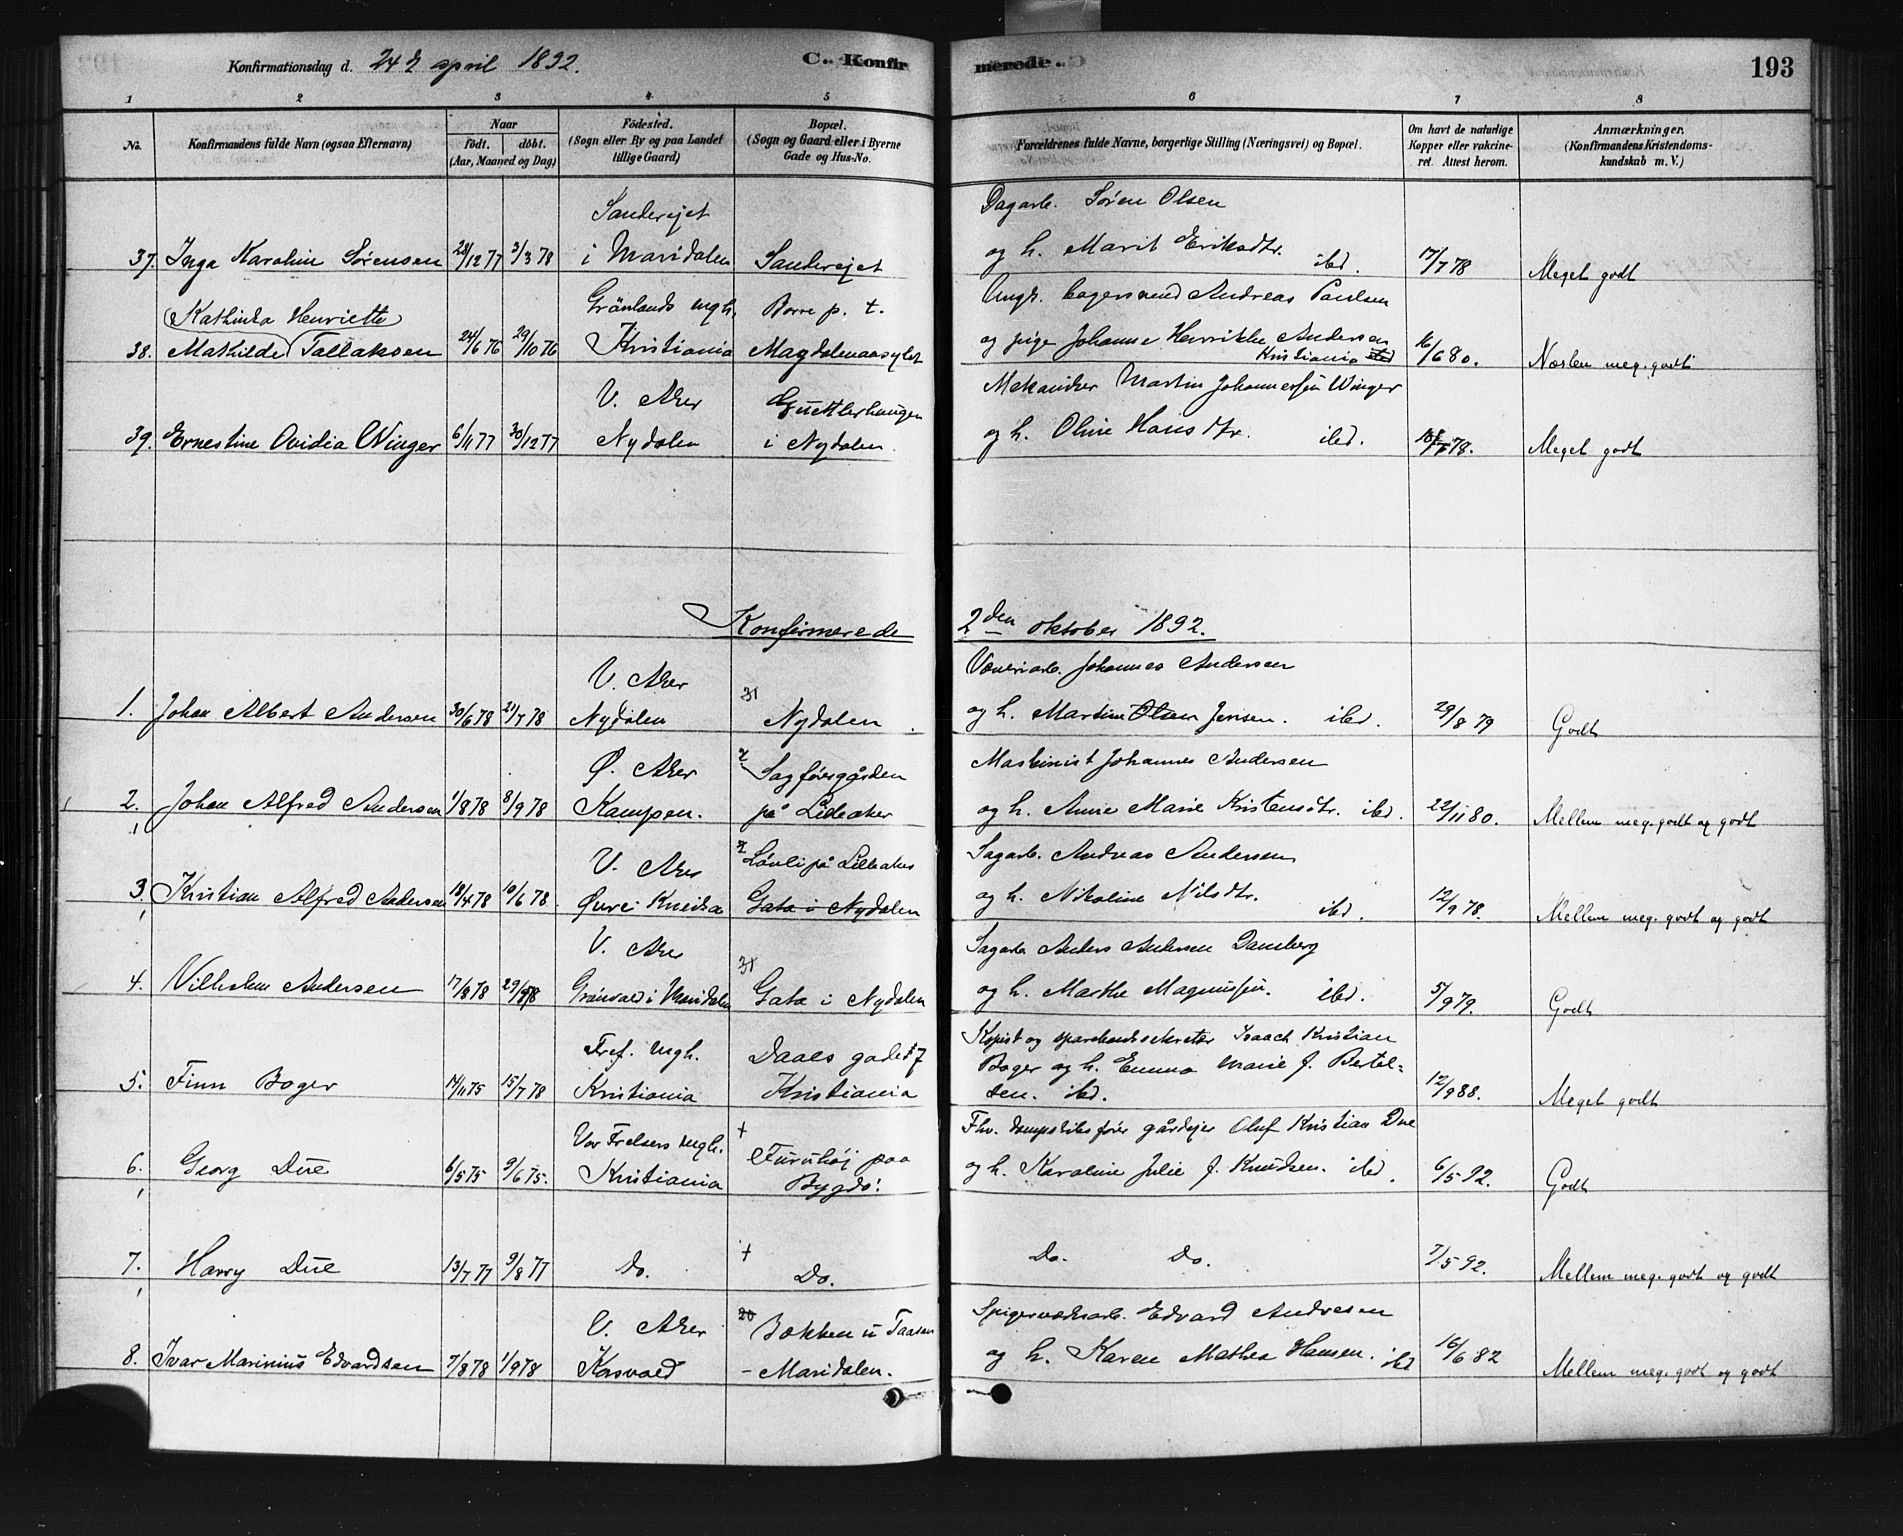 Konfirmationsdag d. 24d april 1892.
C.. Konfir
merede..
193
1 2 3 4 5 6 7 8
No.
Konfirmandens fulde Navn (ogsaa Efternavn)
Naar
født. døbt.
(Aar, Maaned og Dag)
Fødested.
(Sogn eller By og paa Landet
tillige Gaard)
Bopæl.
(Sogn og Gaard eller i Byerne
Gade og Hus-No.
Forældrenes fulde Navne, borgerlige Stilling (Næringsvei) og Bopæl.
Om havt de naturlige
Kopper eller vakcine-
ret. Attest herom.
Anmærkninger.
(Konfirmandens Kristendoms-
kundskab m. V.)
Sanderejet
Dagarb. Søren Olsen
37. Inga Karoline Sørensen 28/12 77 3/3 78 i Maridalen Sanderejet og h. Marit Eriksdtr. ibd. 17/7 78 Meget godt
Kathinka Henriette Grønlands mgh. Borre p. t. Ungk. bagersvend Andreas Paulsen
38. Mathilde Tallaksen 24/6 76 29/10 76 Kristiania Magdalenaasylet og pige Johanne Henrikke Andersen
Kristiania ibd 16/6 80. Næsten meg. godt
V. Aker Guttlerhaugen Mekaniker Martin Johannessen Winger
39. Ernestine Ovidia Winger 6/11 77 30/12 77 Nydalen i Nydalen. og h. Oline Hansdtr. ibd. 18/7 78. Meget godt
Konfirmerede 2den oktober 1892.
V. Aker 31 Væveriarb. Johannes Andersen
1. Johan Albert Andersen 30/6 78 21/7 78 Nydalen Nydalen. og h. Martine Olsen Jensen. ibd. 29/8 79 Godt
Ø. Aker Sagførergården Maskinist Johannes Andersen
2. Johan Alfred Andersen 1/8 78 8/9 78 Kampen. på Lilleaker og h. Anne Marie Kristensdtr. ibd. 22/11 80. Mellem meg. godt og godt
V. Aker Løvli på Lilleaker Sagarb. Andreas Andersen
3. Kristian Alfred Andersen 18/4 78 10/6 78 Øvre Gata i Nydalen og h. Nikoline Nilsdtr. ibd. 12/9 78. Mellem meg. godt og godt
V. Aker 31 Sagarb. Anders Andersen Damberg
4. Vilhelm Andersen 17/8 78 29/9 78 Grønvold i Maridalen Gata i Nydalen og h. Marthe Magnussen. ibd. 5/9 79. Godt
Tref. mgh. Daaes gade 17 Kopist og sparebanksekretær Isaach Kristian
5. Finn Boger 14/11 75 15/7 78 Kristiania Kristiania Boger og h. Emma Marie f. Bertel=
sen. ibd. 12/9 88. Meget godt
Vor Frelsers mgh. + Furuhøj paa Fhv. dampskibsfører gårdejer Oluf Kristian Due
6. Georg Due 6/5 75 9/6 75. Kristiania Bygdø. og h. Karoline Julie f. Knudsen. ibd. 6/5 92. Godt
7. Harry Due 13/7 77 9/8 77 Do. + Do. Do. Do. 7/5 92. Mellem meg. godt og godt
V. Aker 20 Bækken u. Taasen Spigerværksarb. Edvard Andresen
8. Ivar Marinius Edvardsen 7/8 78 1/9 78 Korsvold - Maridalen. og h. Karen Mathea Hansen. ibd 16/6 82 Mellem meg. godt og godt